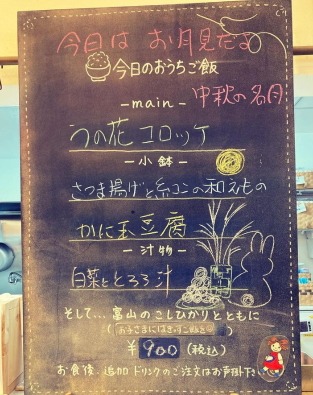 今日は お月見だよ
今日のおうちご飯
中秋の名月
-main-
うの花コロッケ
-小鉢-
さつま揚げと糸コンの和えもの
かに玉豆腐
-汁物-
白菜ととろろ汁
そして... 富山のこしひかりとともに
¥900(税込)
お食後、追加ドリンクのご注文はお声掛け下さい